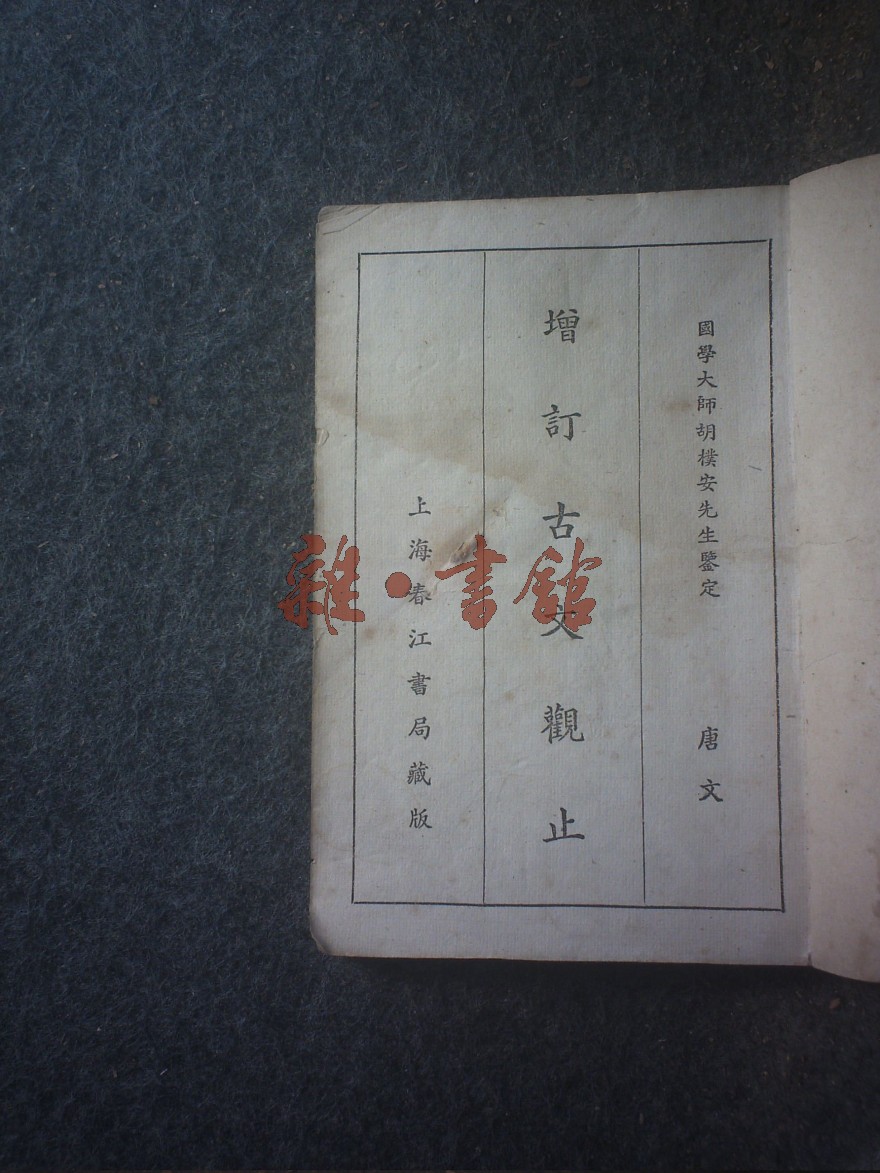 國學大師胡樸安先生鑒定
唐文
增訂古文觀止
上海春江書局藏版
雜·書館